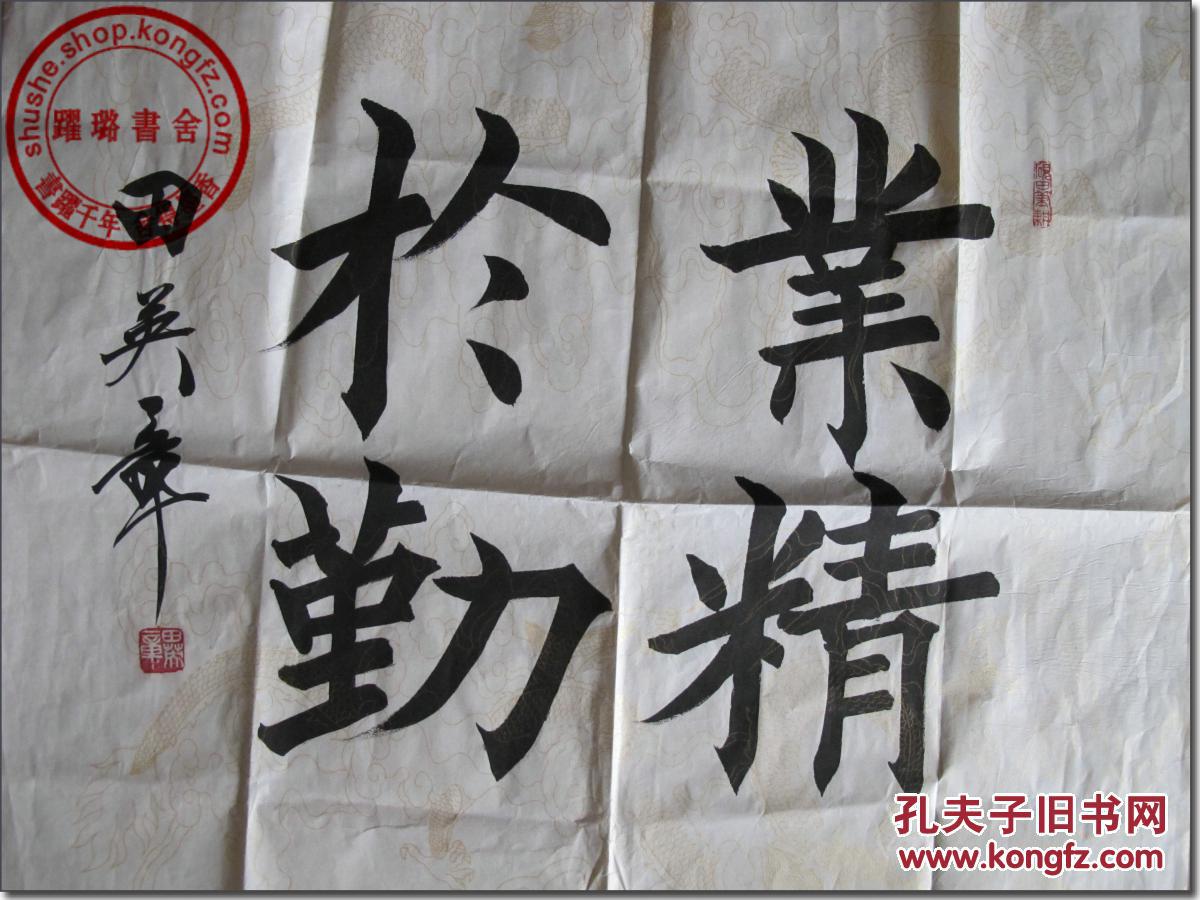 業精
於勤
田英章
shushe.shop.kongfz.com
躍璐書舍
書躍千年
孔夫子旧书网
www.kongfz.com